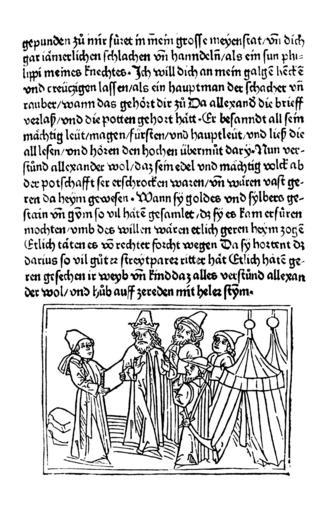 gepunden zů mir fůret in mein grosse meyenstat/vn̄ dich
gar iämerlichen schlachen vn̄ handeln̄/als ein sun phi-
lippi meines knechtes. Ich will dich an mein galgē hēckē
vnd creüczigen lassen/als ein hauptman der schacher vn̄
rauber/wann das gehört dir zů Da allexand̄ die brieff
verlaß/vnd die potten gehort hātt. Er besandt all sein
mächtig leüt/magen/fürsten/vnd hauptleüt/vnd ließ die
all lesen/vnd hören den hochen übermůt darȳ. Nun ver-
stůnd allexander wol/daz sein edel vnd mächtig volck ab
der potschafft ser erschrocken waren/vn̄ wären vast ge-
ren da heym gewesen. Wann sy goldes vnd sylbers ge-
stain vn̄ so vil hätē gesamlet/dz sy es kam erfüren
mochten/vmb des willen wären etlich geren heym zogē
Etlich täten es vō rechter forcht wegen Da sy hortent dz
darius so vil gůt er streytparer ritter hāt Etlich hätē ge-
ren gesechen ir weyb vn̄ kinddaz alles verstůnd allexan
der wol/vnd hůb auff zereden mit heler stym̄.